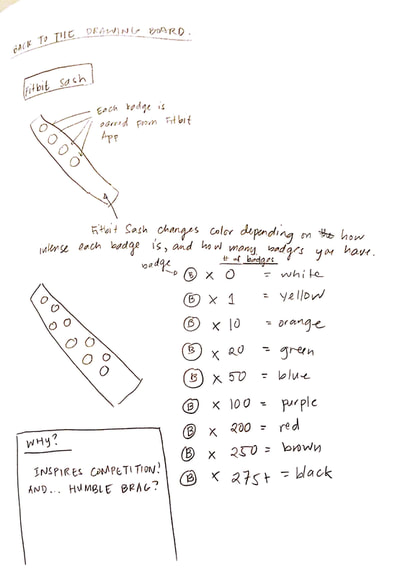 BACK TO THE DRAWING BOARD.
Fitbit Sash
Each badge is
earned from Fitbit
App
Fitbit Sash changes color depending on how
intense each badge is, and how many badges you have.
badge
# of badges
B × 0 = white
B × 1 = yellow
B × 10 = orange
B × 20 = green
B × 50 = blue
B × 100 = purple
B × 200 = red
B × 250 = brown
B × 275+ = black
WHY?
INSPIRES COMPETITION!
AND... HUMBLE BRAG?